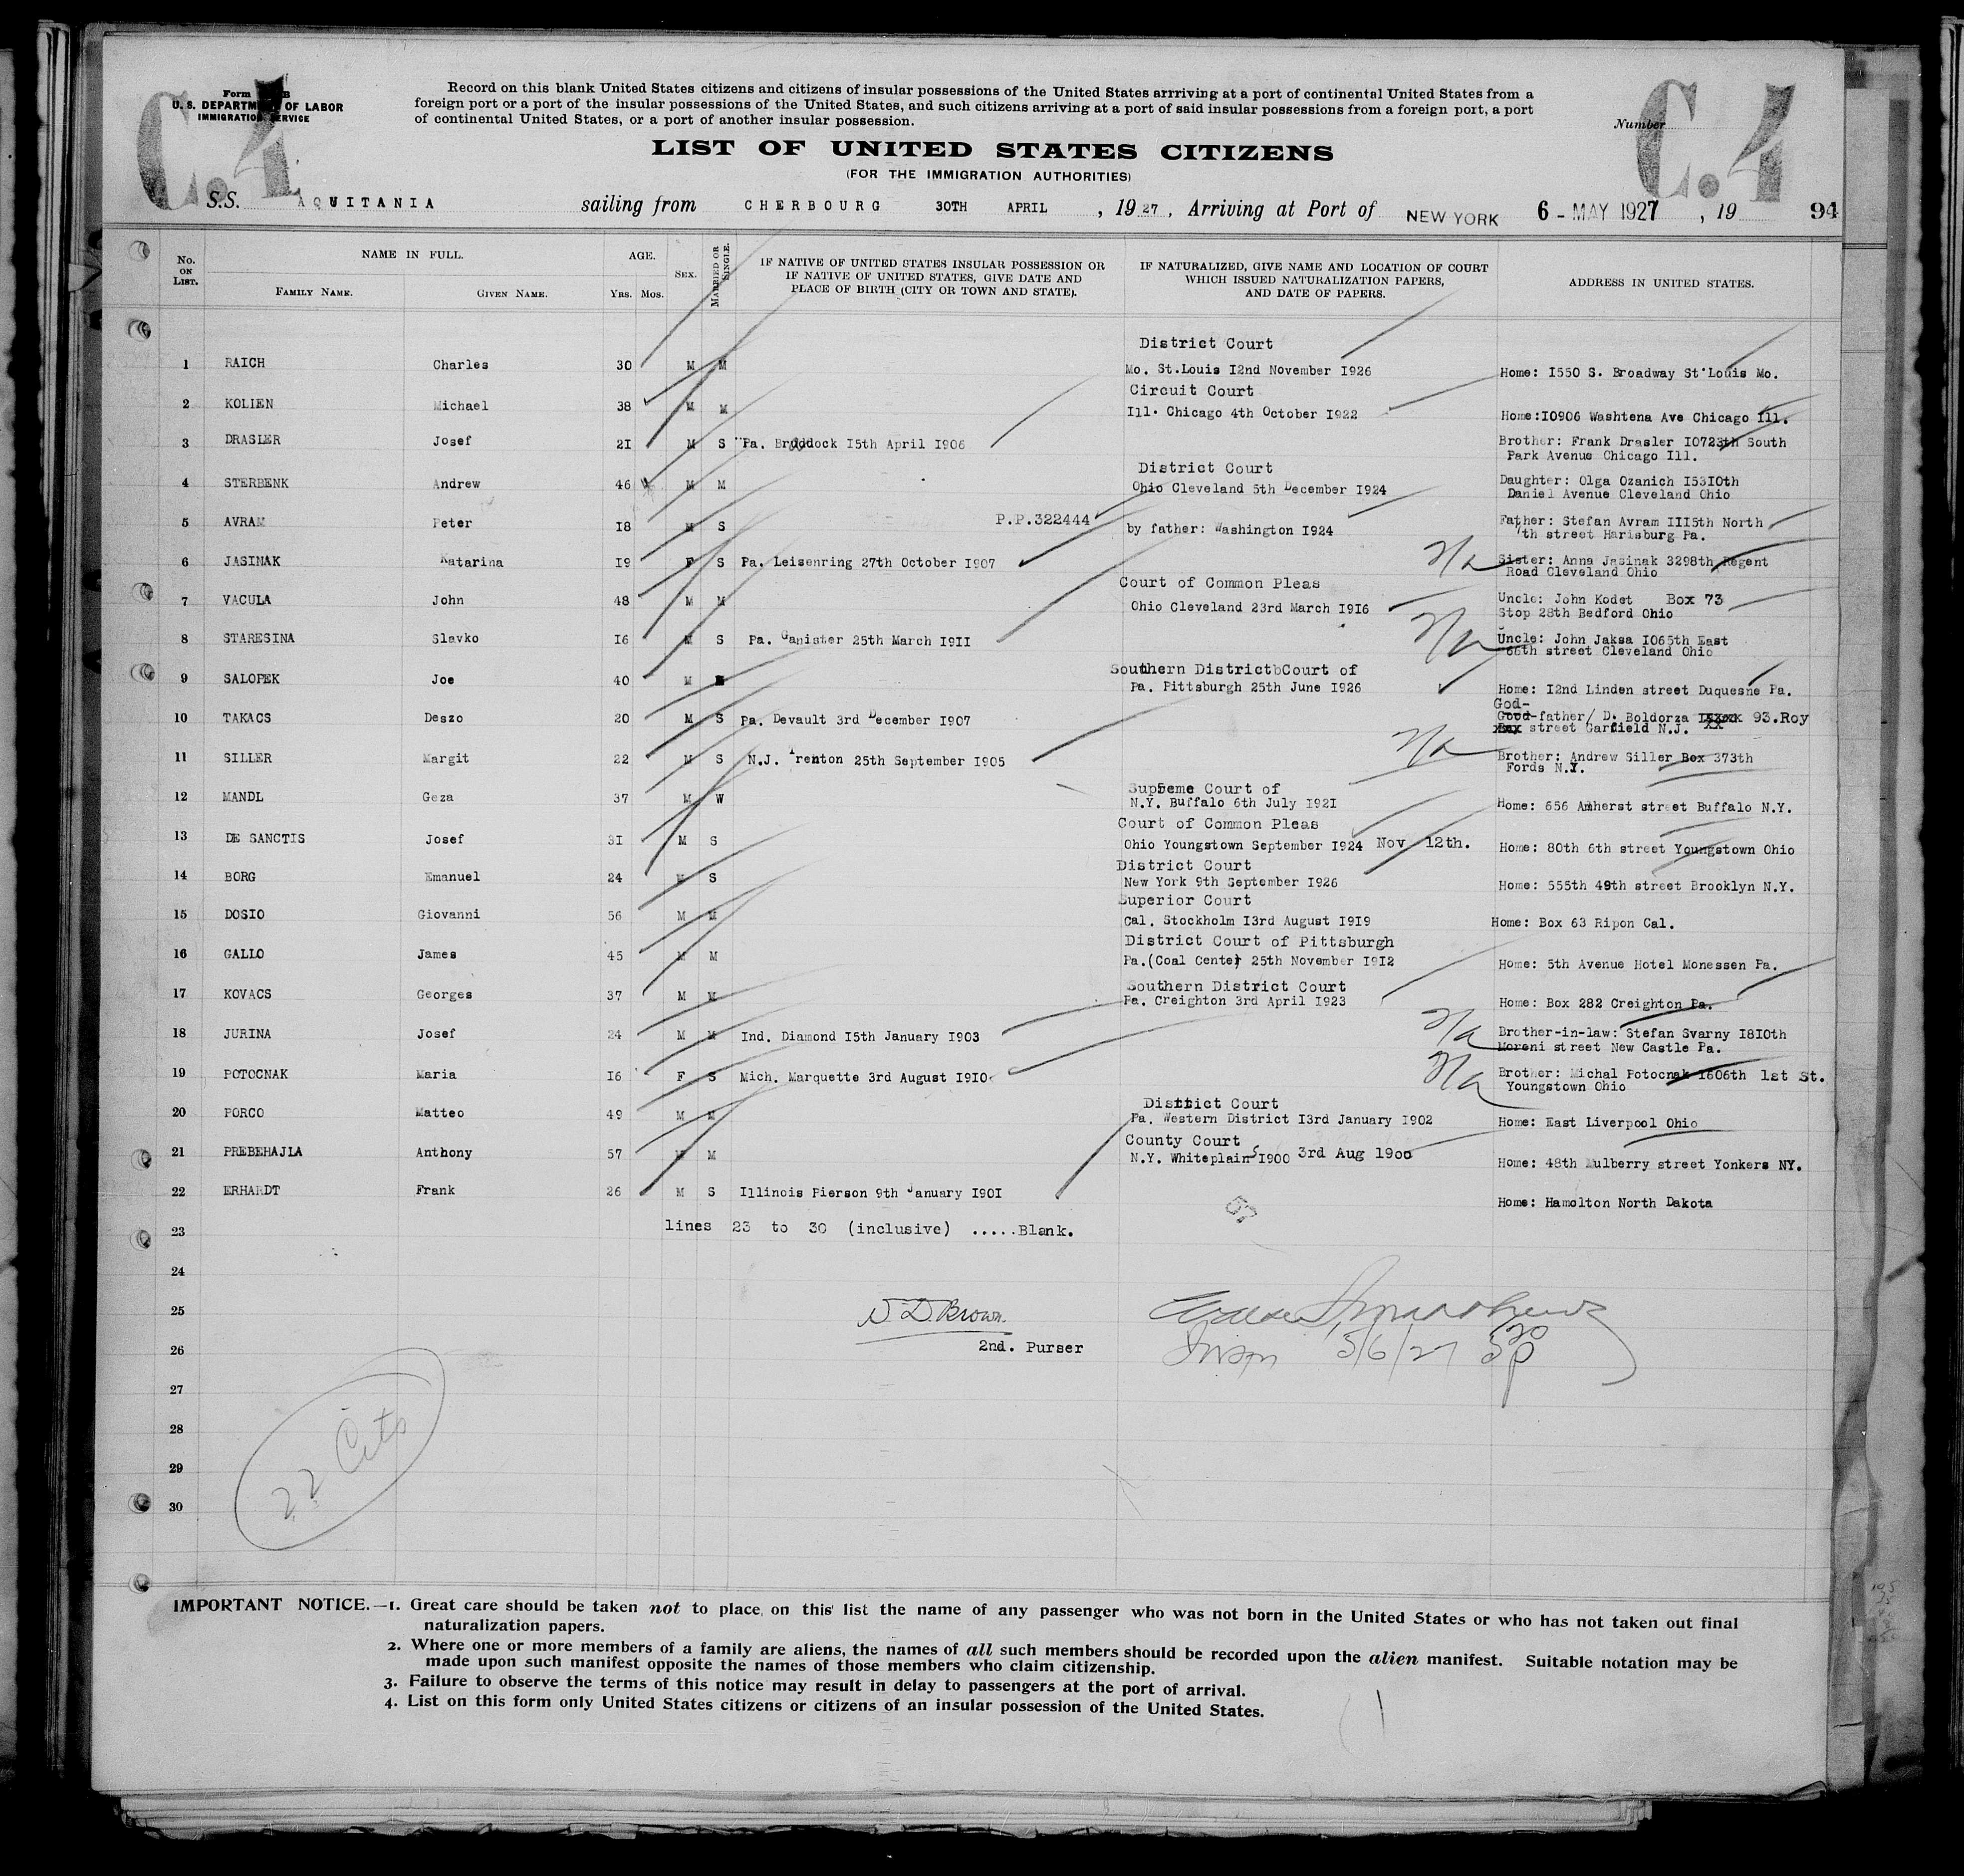 C.4
C.4
Form B
U. S. DEPARTMENT OF LABOR
IMMIGRATION SERVICE
Record on this blank United States citizens and citizens of insular possessions of the United States arrriving at a port of continental United States from a
foreign port or a port of the insular possessions of the United States, and such citizens arriving at a port of said insular possessions from a foreign port, a port
of continental United States, or a port of another insular possession.
Number
LIST OF UNITED STATES CITIZENS
(FOR THE IMMIGRATION AUTHORITIES)
S.S. AQUITANIA sailing from CHERBOURG 30TH APRIL, 1927, Arriving at Port of NEW YORK 6 - MAY 1927, 19 94
No. ON LIST. NAME IN FULL. FAMILY NAME. GIVEN NAME. AGE. YRS. MOS. SEX. MARRIED OR SINGLE.
IF NATIVE OF UNITED STATES INSULAR POSSESSION OR
IF NATIVE OF UNITED STATES, GIVE DATE AND
PLACE OF BIRTH (CITY OR TOWN AND STATE).
IF NATURALIZED, GIVE NAME AND LOCATION OF COURT
WHICH ISSUED NATURALIZATION PAPERS,
AND DATE OF PAPERS.
ADDRESS IN UNITED STATES.
District Court
1 RAICH Charles 30 M M Mo. St.Louis I2nd November I926 Home: I550 S. Broadway St Louis Mo.
Circuit Court
2 KOLIEN Michael 38 M M Ill. Chicago 4th October I922 Home:I0906 Washtena Ave Chicago Ill.
3 DRASLER Josef 2I M S Pa. Braddock I5th April I906 Brother: Frank Drasler I0723th South
Park Avenue Chicago Ill.
District Court
4 STERBENK Andrew 46 M M Ohio Cleveland 5th December I924 Daughter: Olga Ozanich I53I0th
Daniel Avenue Cleveland Ohio
5 AVRAM Peter I8 M S P.P.322444 by father: Washington I924 Father: Stefan Avram III5th North
7th street Harisburg Pa.
6 JASINAK Katarina I9 F S Pa. Leisenring 27th October I907 Sister: Anna Jasinak 3298th Regent
Road Cleveland Ohio
Court of Common Pleas
7 VACULA John 48 M M Ohio Cleveland 23rd March I9I6 Uncle: John Kodet Box 73
Stop 28th Bedford Ohio
8 STARESINA Slavko I6 M S Pa. Ganister 25th March I9II Uncle: John Jaksa I065th East
66th street Cleveland Ohio
Southern DistrictbCourt of
9 SALOPEK Joe 40 M Pa. Pittsburgh 25th June I926 Home: I2nd Linden street Duquesne Pa.
God-
10 TAKACS Deszo 20 M S Pa. Devault 3rd December I907 Good-father/ D. Boldorza 93.Roy
street Garfield N.J.
11 SILLER Margit 22 M S N.J. Trenton 25th September I905 Brother: Andrew Siller Box 373th
Fords N.Y.
Supreme Court of
12 MANDL Geza 37 M W N.Y. Buffalo 6th July I92I Home: 656 Amherst street Buffalo N.Y.
Court of Common Pleas
13 DE SANCTIS Josef 3I M S Ohio Youngstown September I924 Nov 12th. Home: 80th 6th street Youngstown Ohio
District Court
14 BORG Emanuel 24 M S New York 9th September I926 Home: 555th 49th street Brooklyn N.Y.
Superior Court
15 DOSIO Giovanni 56 M M Cal. Stockholm I3rd August I9I9 Home: Box 63 Ripon Cal.
District Court of Pittsburgh
16 GALLO James 45 M M Pa.(Coal Center) 25th November I9I2 Home: 5th Avenue Hotel Monessen Pa.
Southern District Court
17 KOVACS Georges 37 M M Pa. Creighton 3rd April I923 Home: Box 282 Creighton Pa.
18 JURINA Josef 24 M M Ind. Diamond I5th January I903 Brother-in-law: Stefan Svarny I8I0th
Moreni street New Castle Pa.
19 POTOCNAK Maria I6 F S Mich. Marquette 3rd August I9I0 Brother: Michal Potocnak I606th 1st St.
Youngstown Ohio
District Court
20 PORCO Matteo 49 M M Pa. Western District I3rd January I902 Home: East Liverpool Ohio
County Court
21 PREBEHAJLA Anthony 57 M M N.Y. Whiteplains I900 3rd Aug 1900 Home: 48th Mulberry street Yonkers NY.
22 ERHARDT Frank 26 M S Illinois Pierson 9th January I90I Home: Hamolton North Dakota
23 lines 23 to 30 (inclusive) .....Blank.
24
25 Brown
26 2nd. Purser 5/6/27
27
28
29
30
22 Cits
IMPORTANT NOTICE.—1. Great care should be taken not to place on this list the name of any passenger who was not born in the United States or who has not taken out final
naturalization papers.
2. Where one or more members of a family are aliens, the names of all such members should be recorded upon the alien manifest. Suitable notation may be
made upon such manifest opposite the names of those members who claim citizenship.
3. Failure to observe the terms of this notice may result in delay to passengers at the port of arrival.
4. List on this form only United States citizens or citizens of an insular possession of the United States.